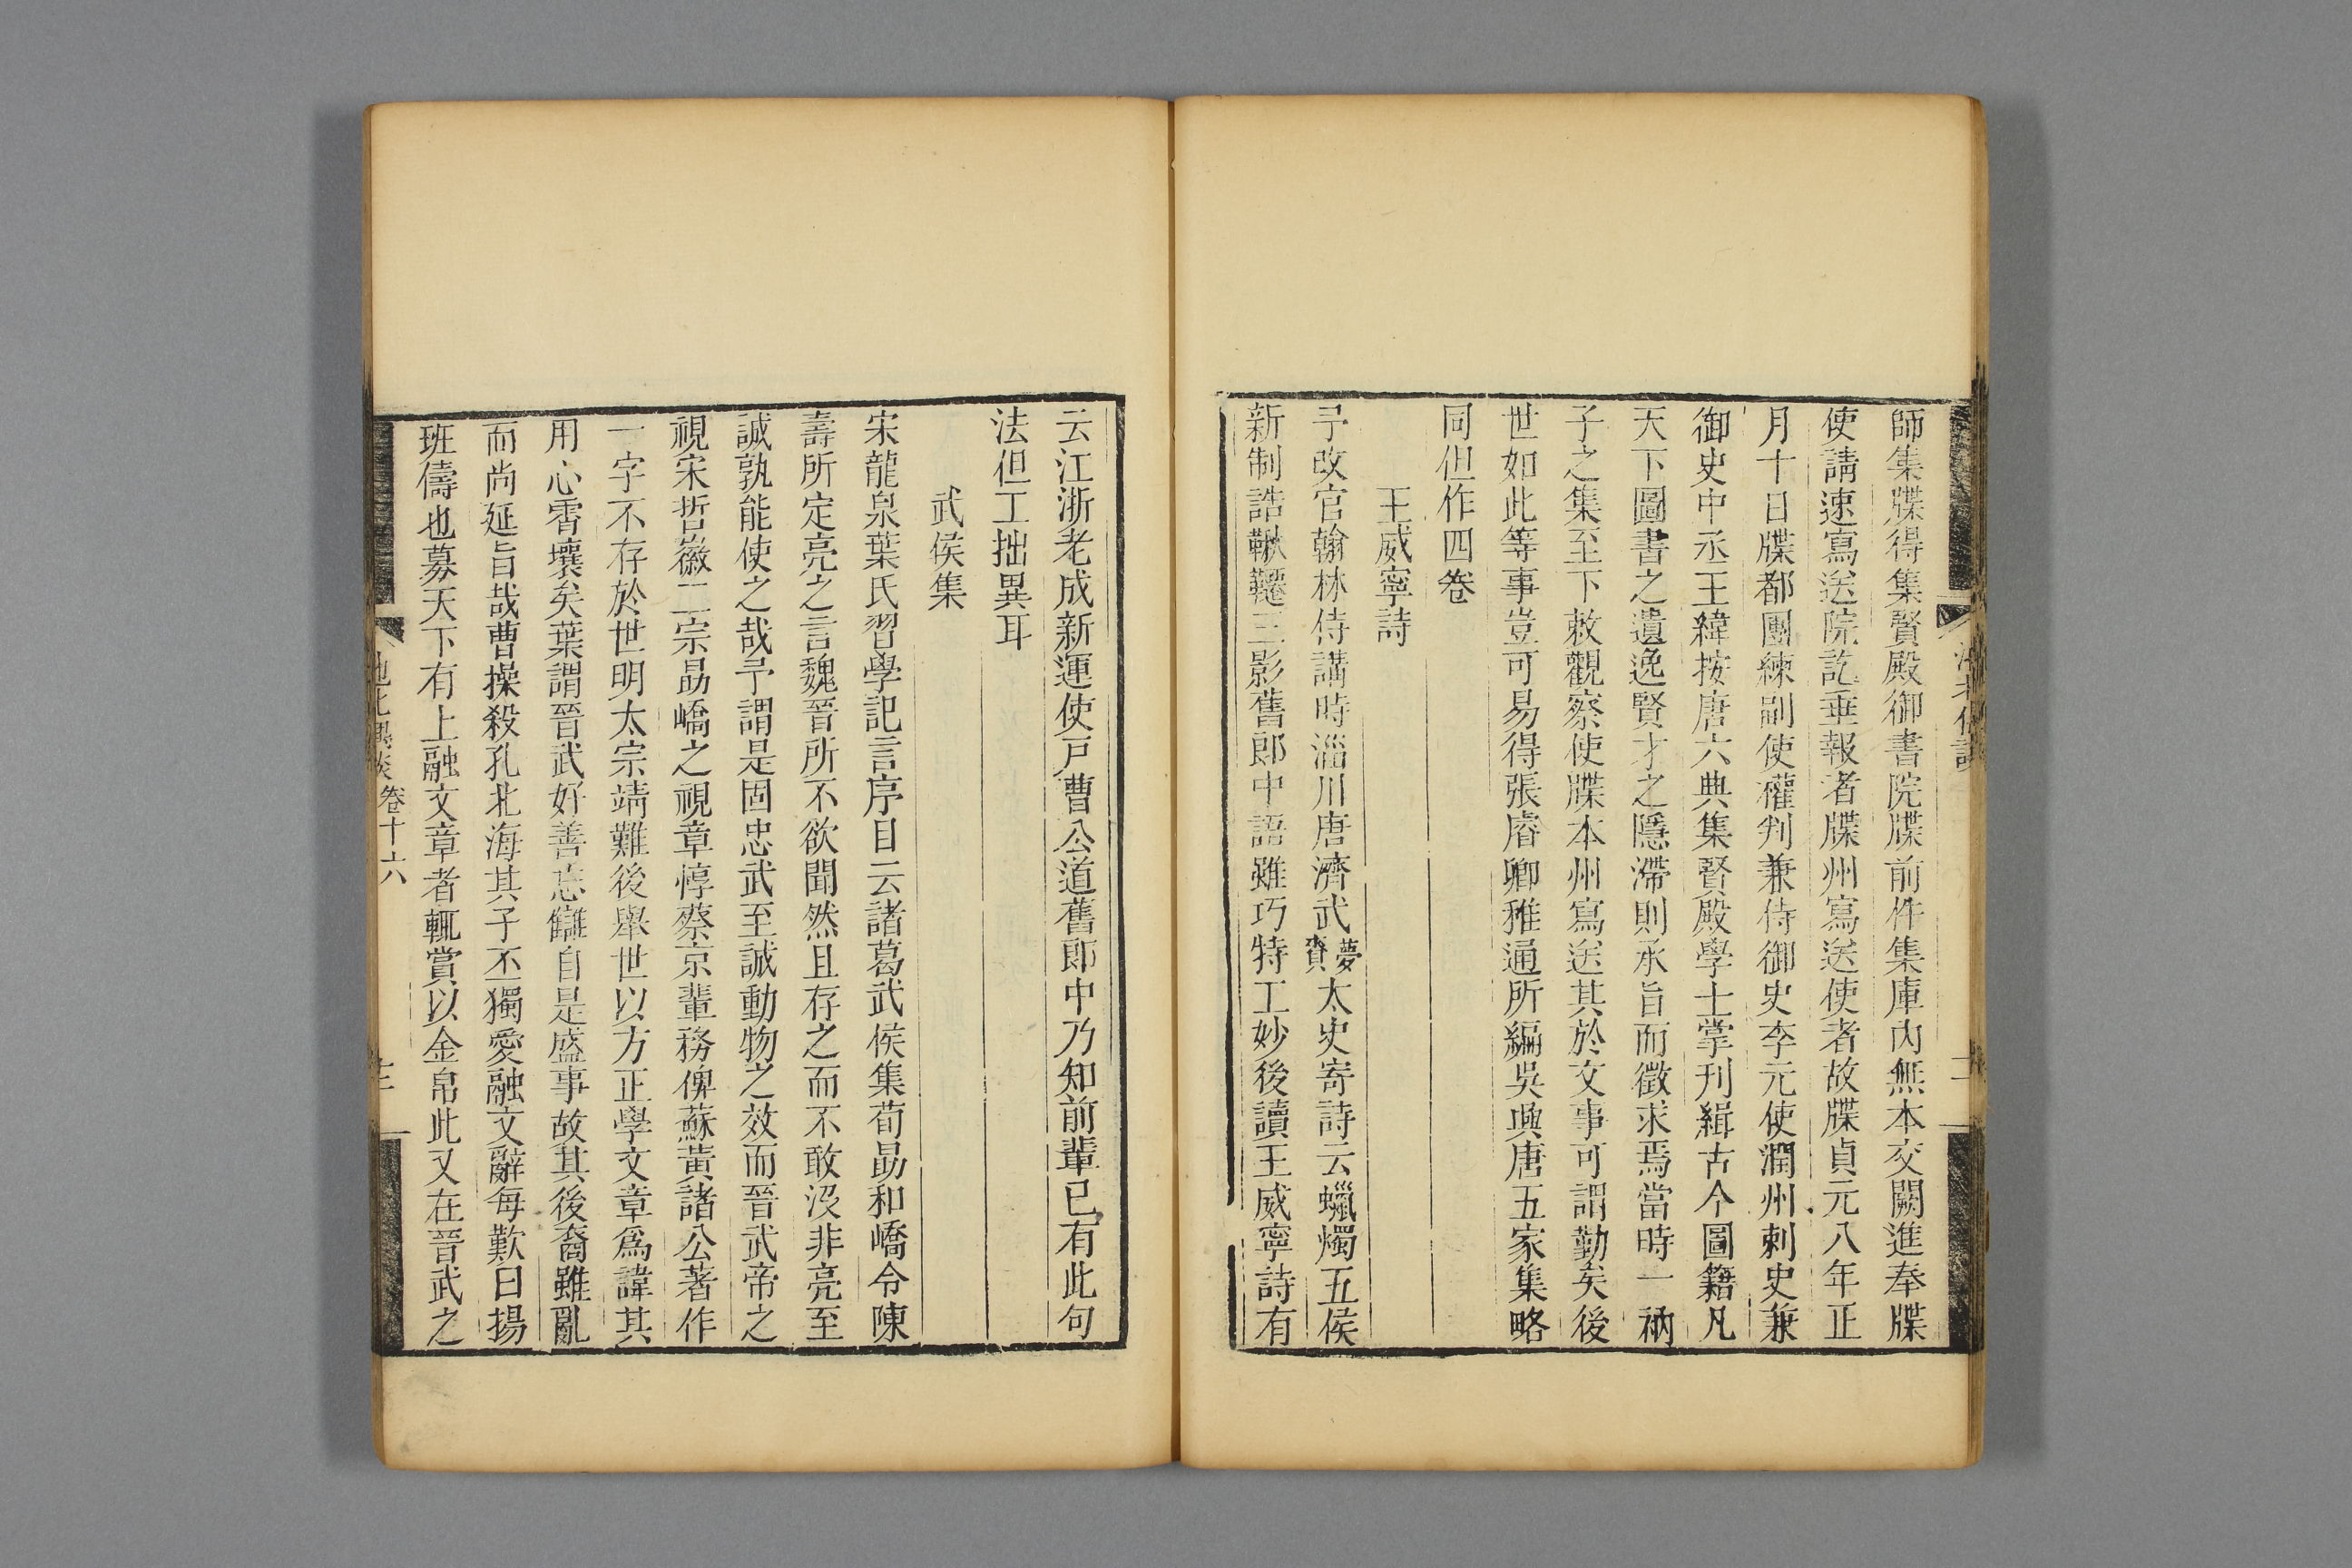 師集牒得集賢殿御書院牒前件集庫內無本交闕進奉牒
使請速寫送院訖垂報者牒州寫送使者故牒貞元八年正
月十日牒都團練副使權判兼侍御史李元使潤州刺史兼
御史中丞王緯按唐六典集賢殿學士掌刊緝古今圖籍凡
天下圖書之遺逸賢才之隱滯則承旨而徵求焉當時一衲
子之集至下敕觀察使牒本州寫送其於文事可謂勤矣後
世如此等事豈可易得張睿卿稚通所編吳興唐五家集略
同但作四卷
王威寧詩
予改官翰林侍講時淄川唐濟武夢賚太史寄詩云蠟燭五侯
新制誥鞦韆三影舊郎中語雖巧特工妙後讀王威寧詩有
云江浙老成新運使戸曹公道舊郎中乃知前輩已有此句
法但工拙異耳
武侯集
宋龍泉葉氏習學記言序目云諸葛武侯集荀勗和嶠令陳
壽所定亮之言魏晉所不欲聞然且存之而不敢沒非亮至
誠孰能使之哉予謂是固忠武至誠動物之效而晉武帝之
視宋哲徽二宗勗嶠之視章惇蔡京輩務俾蘇黃諸公著作
一字不存於世明太宗靖難後舉世以方正學文章爲諱其
用心霄壤矣葉謂晉武好善忘讎自是盛事故其後裔雖亂
而尚延旨哉曹操殺孔北海其子丕獨愛融文辭每歎曰揚
班儔也募天下有上融文章者輒賞以金帛此又在晉武之
池北偶談 卷十六